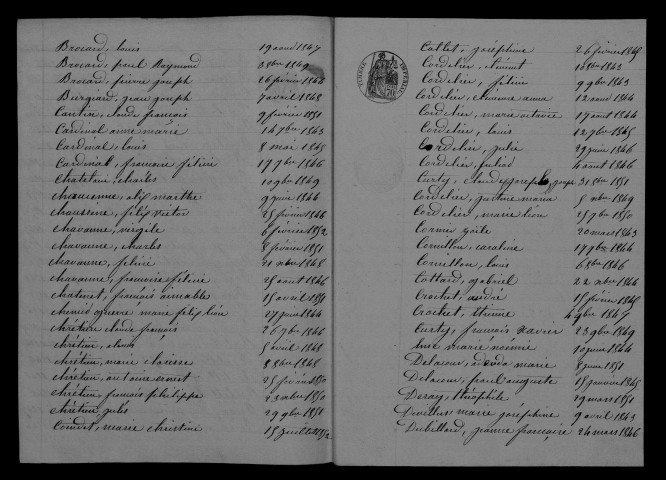 Brocard, louis 19 aout 1847
Brocard, paul Raymond 8bre 1849
Brocard, pierre joseph 26 février 1848
Burgiard, jean joseph 7 avril 1848
Cantin, claude francois 9 février 1851
Cardinal anne marie 14 7bre 1843
Cardinal, louis 8 mai 1845
Cardinal, francois félicie 17 9bre 1846
Chatelain, charles 10 9bre 1849
chaucenne, alix marthe 9 juin 1844
chaussenne, félix victor 25 février 1846
chavanne, virgile 6 février 1852
chavanne, charles 8 février 1851
chavanne, félicie 21 xbre 1848
chavanne, francoise félicie 25 aout 1846
chatenet, françois aimable 15 avril 1851
marie félix léon 27 juin 1844
chrétien claude françois 26 7bre 1846
chrétien, 5 avril 1848
chrétien, marie 8 8bre 1848
chrétien, antoine ernest 25 février 1850
chrétien, francois philippe 23 xbre 1850
chrétien jules 29 9bre 1851
Coindet, marie christine 15 juillet 1852
TIMBRE IMPERIAL
Collet, joséphine 26 février 1845
Cordelier, clément 10 8bre 1843
Cordelier, félicie 9 9bre 1843
Cordelier, anna 12 aout 1844
Cordelier, marie octavie 17 aout 1844
Cordelier, louis 12 7bre 1845
Cordelier, julie 29 juin 1846
Cordelier, julie 4 aout 1846
Curty, claude joseph 31 8bre 1851
Cordelier, justine maria 5 xbre 1849
Cordelier, marie léon 25 9bre 1850
Cornu zoïte 20 mars 1843
Cornillon, caroline 17 9bre 1844
Cornillon, louis 6 8bre 1846
Cottard, gabriel 22 xbre 1844
Crochet, andré 15 février 1845
Crochet, étienne 4 9bre 1847
Curty, francois Xavier 23 9bre 1849
marie noémie 10 janvier 1844
Delacour, marie 8 juin 1851
Delacour, paul auguste 15 janvier 1845
Deray, théophile 19 mars 1851
marie joséphine 9 avril 1843
Dubillard, jeanne françoise 24 mars 1846